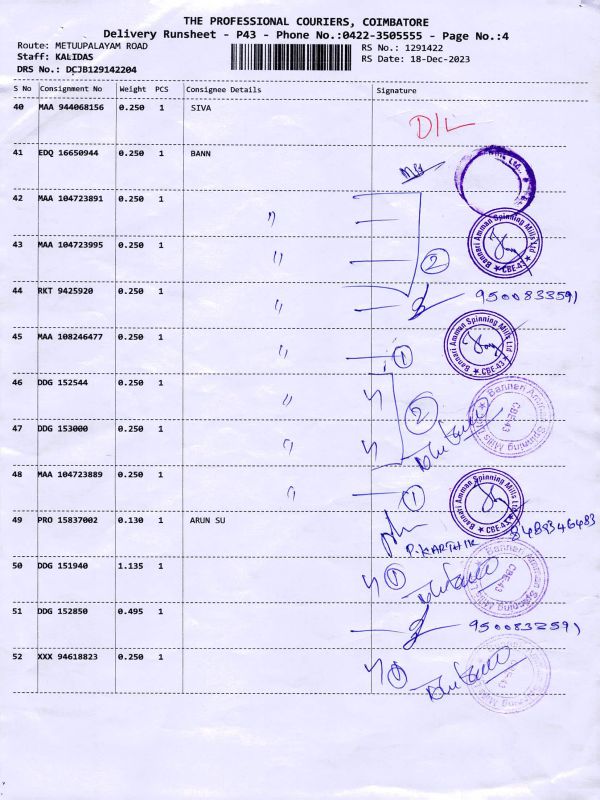 THE PROFESSIONAL COURIERS, COIMBATORE
Delivery Runsheet - P43 - Phone No.:0422-3505555 - Page No.:4
Route: METUUPALAYAM ROAD RS No.: 1291422
Staff: KALIDAS RS Date: 18-Dec-2023
DRS No.: DCJB129142204
S No Consignment No Weight PCS Consignee Details Signature
40 MAA 944068156 0.250 1 SIVA D/L
41 EDQ 16650944 0.250 1 BANN
42 MAA 104723891 0.250 1 "
43 MAA 104723995 0.250 1 " 2 Bannari Amman Spinning Mills Ltd CBE-43
44 RKT 9425920 0.250 1 " 9500833591
45 MAA 108246477 0.250 1 " 1 Bannari Amman Spinning Mills Ltd CBE-43
46 DDG 152544 0.250 1 "
47 DDG 153000 0.250 1 " 2 Bannari Amman Spinning Mills Ltd CBE-43
48 MAA 104723889 0.250 1 " 1 Bannari Amman Spinning Mills Ltd CBE-43
49 PRO 15837002 0.130 1 ARUN SU P. KARTHIK 8489346483
50 DDG 151940 1.135 1 1 Bannari Amman Spinning Mills Ltd CBE-43
51 DDG 152850 0.495 1 9500832591
52 XXX 94618823 0.250 1 1 Bannari Amman Spinning Mills Ltd CBE-43